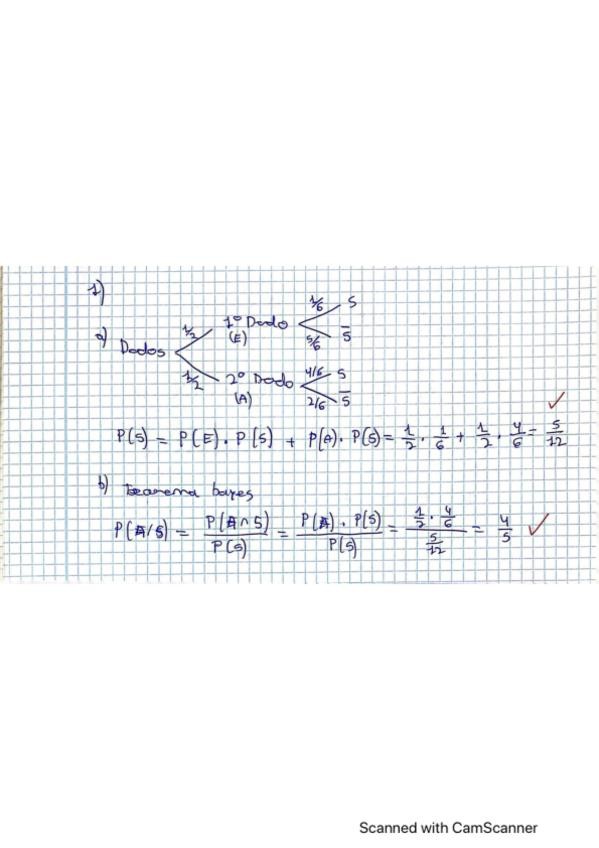 1)
1/6 S
1/2 1º Dado
(E) 5/6 S̅
a) Dados
1/2 2º Dado 4/6 S
(A) 2/6 S̅
P(S) = P(E) · P(S) + P(A) · P(S) = 1/2 · 1/6 + 1/2 · 4/6 = 5/12
b) Teorema bayes
P(A/S) = P(A∩S)/P(S) = P(A) · P(S)/P(S) = (1/2 · 4/6)/(5/12) = 4/5
Scanned with CamScanner